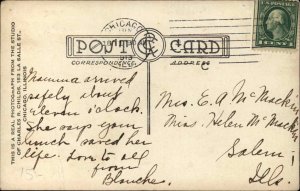 CHICAGO
1913
POST CARD
CORRESPONDENCE
ADDRESS
1 CENT 1
THIS IS A REAL PHOTOGRAPH FROM THE STUDIO
OF CHARLES R. CHILDS, 153 LA SALLE ST.,
CHICAGO, ILLINOIS
Mamma arrived
safely about
Eleven o'clock.
She says your
lunch saved her
life. Love to all
from
Blanche.
Mrs. E. A. McMackin
Miss. Helen McMackin
Salem
Ills.
15-